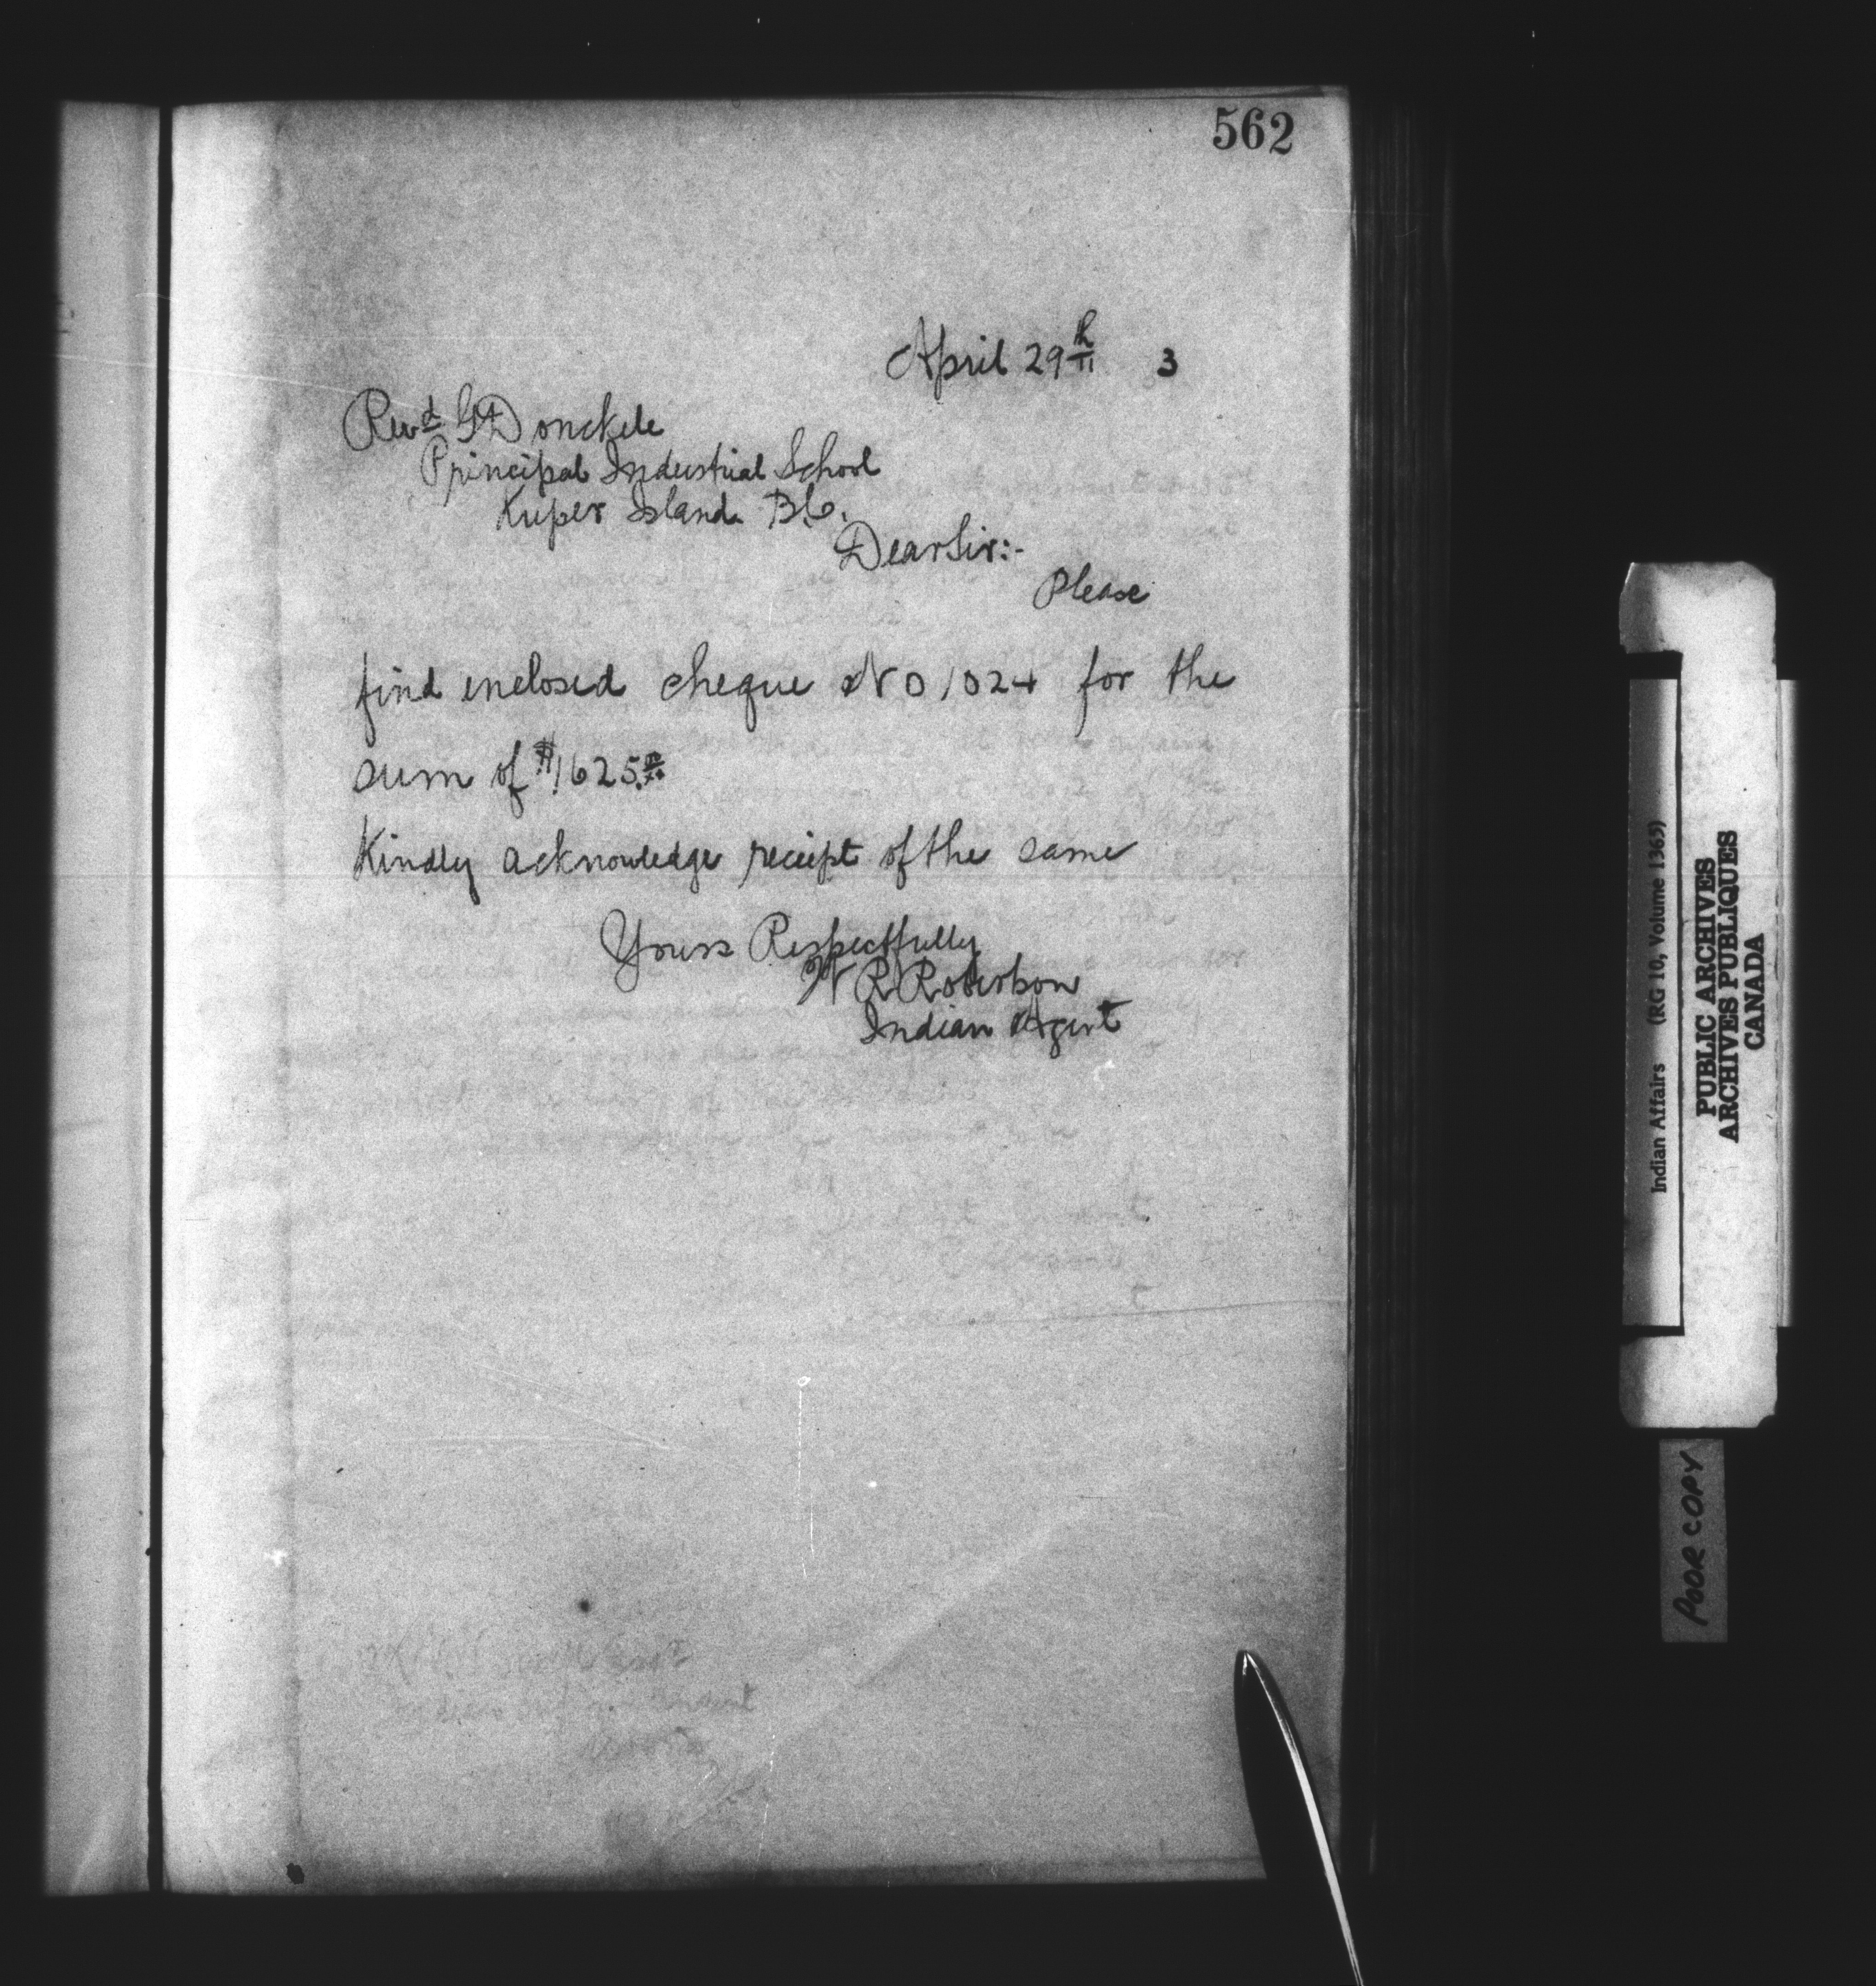 562
April 29th 3
Revd G Donckele
Principal Industrial School
Kuper Island B.C.
Dear Sir:-
Please
find enclosed cheque No 1024 for the
sum of $1625.00/xx
Kindly acknowledge receipt of the same
Yours Respectfully
W R Robertson
Indian Agent
Indian Affairs (RG 10, Volume 1365)
PUBLIC ARCHIVES
ARCHIVES PUBLIQUES
CANADA
POOR COPY